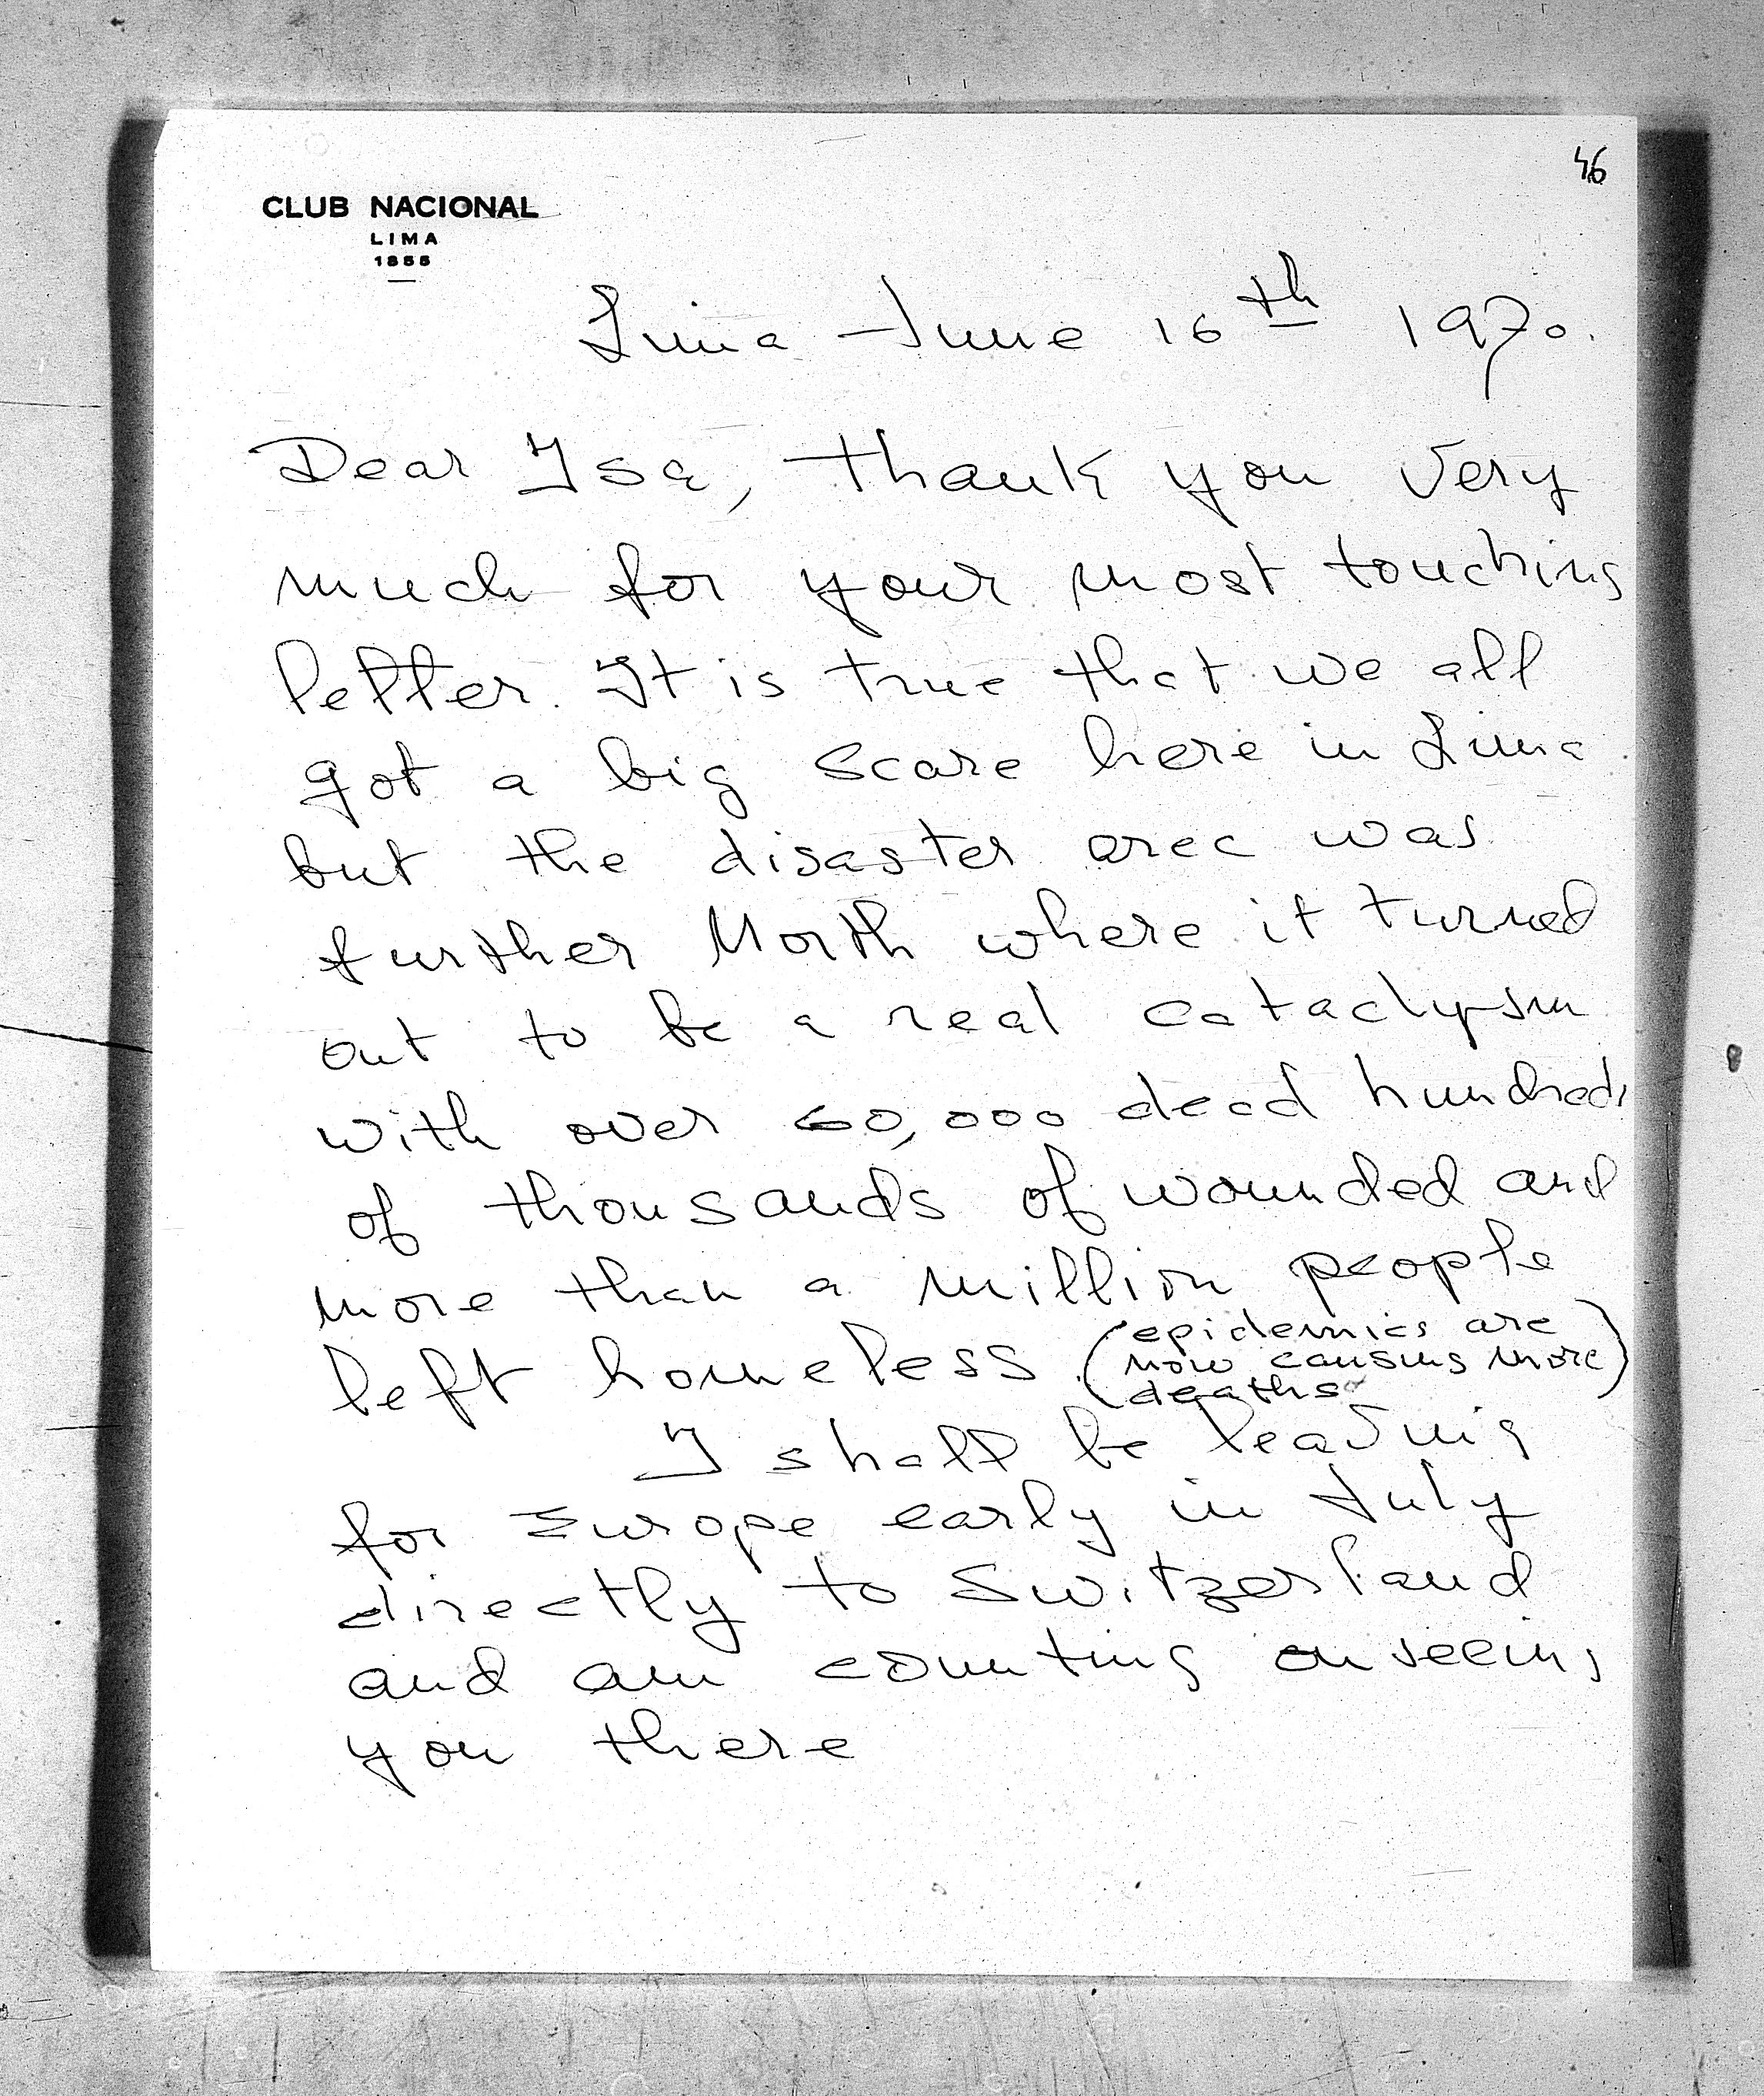 46
CLUB NACIONAL
LIMA
1855
Lima June 16th 1970.
Dear Isa, thank you very
much for your most touching
letter. It is true that we all
got a big scare here in Lima
but the disaster area was
further North where it turned
out to be a real cataclysm
with over 60,000 dead hundreds
of thousands of wounded and
more than a million people
left homeless (epidemics are
now causing more
deaths)
I shall be leaving
for Europe early in July
directly to Switzerland
and am counting on seeing
you there